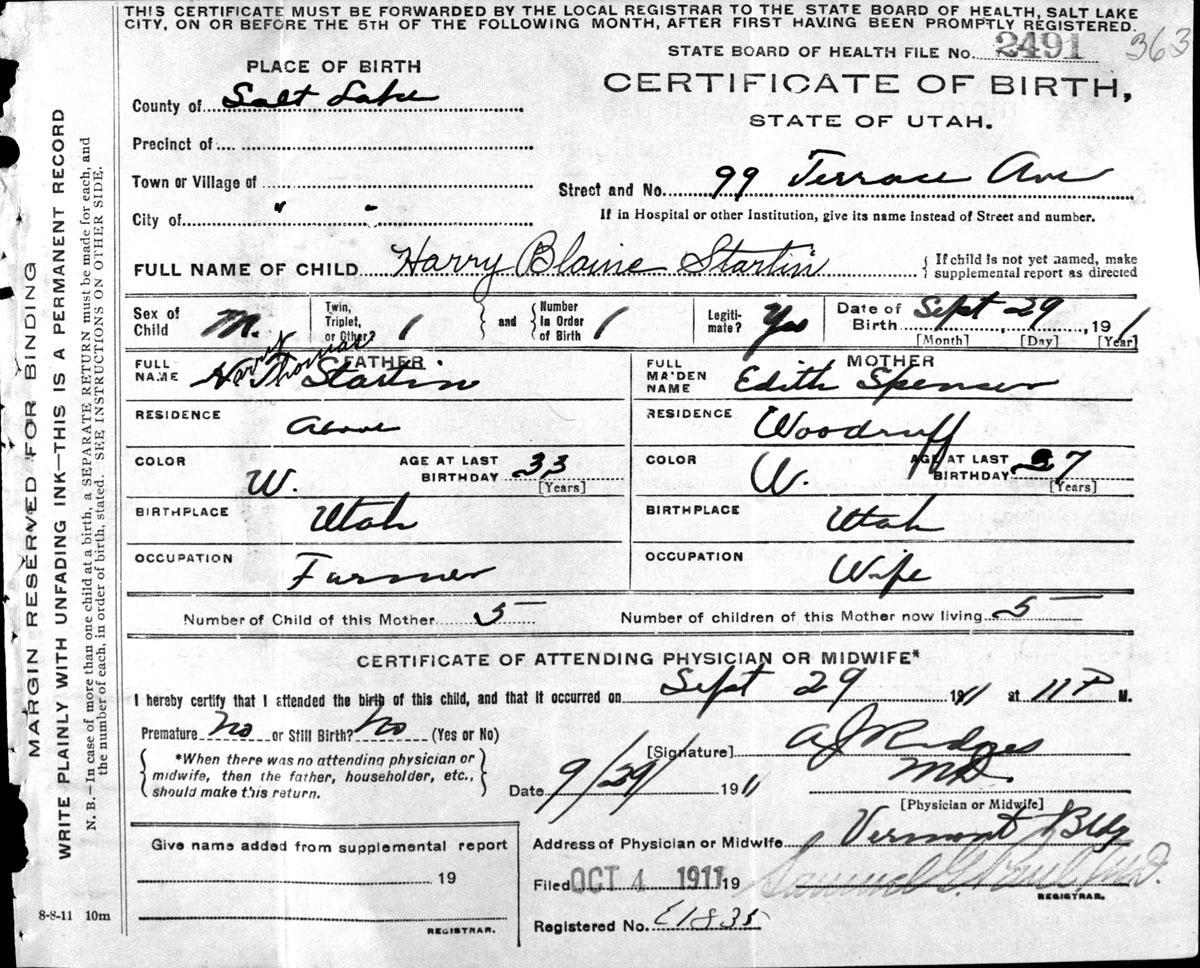 THIS CERTIFICATE MUST BE FORWARDED BY THE LOCAL REGISTRAR TO THE STATE BOARD OF HEALTH, SALT LAKE
CITY, ON OR BEFORE THE 5TH OF THE FOLLOWING MONTH, AFTER FIRST HAVING BEEN PROMPTLY REGISTERED.
STATE BOARD OF HEALTH FILE No. 2491 363
PLACE OF BIRTH
CERTIFICATE OF BIRTH,
STATE OF UTAH.
County of Salt Lake
Precinct of
Town or Village of
Street and No. 99 Terrace Ave
City of " "
If in Hospital or other Institution, give its name instead of Street and number.
FULL NAME OF CHILD Harry Blaine Startin
{ If child is not yet named, make
supplemental report as directed
Sex of Child M. Twin, Triplet, or Other? 1 and Number in Order of Birth 1 Legitimate? Yes Date of Birth Sept 29, 191 1
[Month] [Day] [Year]
FATHER
FULL NAME Harry Thomas Startin
MOTHER
FULL MAIDEN NAME Edith Spenser
RESIDENCE Above
RESIDENCE Woodruff
COLOR W. AGE AT LAST BIRTHDAY 33 [Years]
COLOR W. AGE AT LAST BIRTHDAY 37 [Years]
BIRTHPLACE Utah
BIRTHPLACE Utah
OCCUPATION Farmer
OCCUPATION Wife
Number of Child of this Mother 5 Number of children of this Mother now living 5
CERTIFICATE OF ATTENDING PHYSICIAN OR MIDWIFE*
I hereby certify that I attended the birth of this child, and that it occurred on Sept 29 1911 at 11 P M.
Premature No or Still Birth? No (Yes or No)
*When there was no attending physician or
midwife, then the father, householder, etc.,
should make this return.
[Signature] A J Ridges
M.D.
Date 9/29/ 1911
[Physician or Midwife]
Address of Physician or Midwife Vermont Bldg
Give name added from supplemental report
19
REGISTRAR.
8-8-11 10m
Filed OCT 4 1911 19 Samuel G. Paul M.D.
REGISTRAR.
Registered No. E1835
MARGIN RESERVED FOR BINDING
WRITE PLAINLY WITH UNFADING INK—THIS IS A PERMANENT RECORD
N. B.—In case of more than one child at a birth, a SEPARATE RETURN must be made for each, and
the number of each, in order of birth, stated. SEE INSTRUCTIONS ON OTHER SIDE.